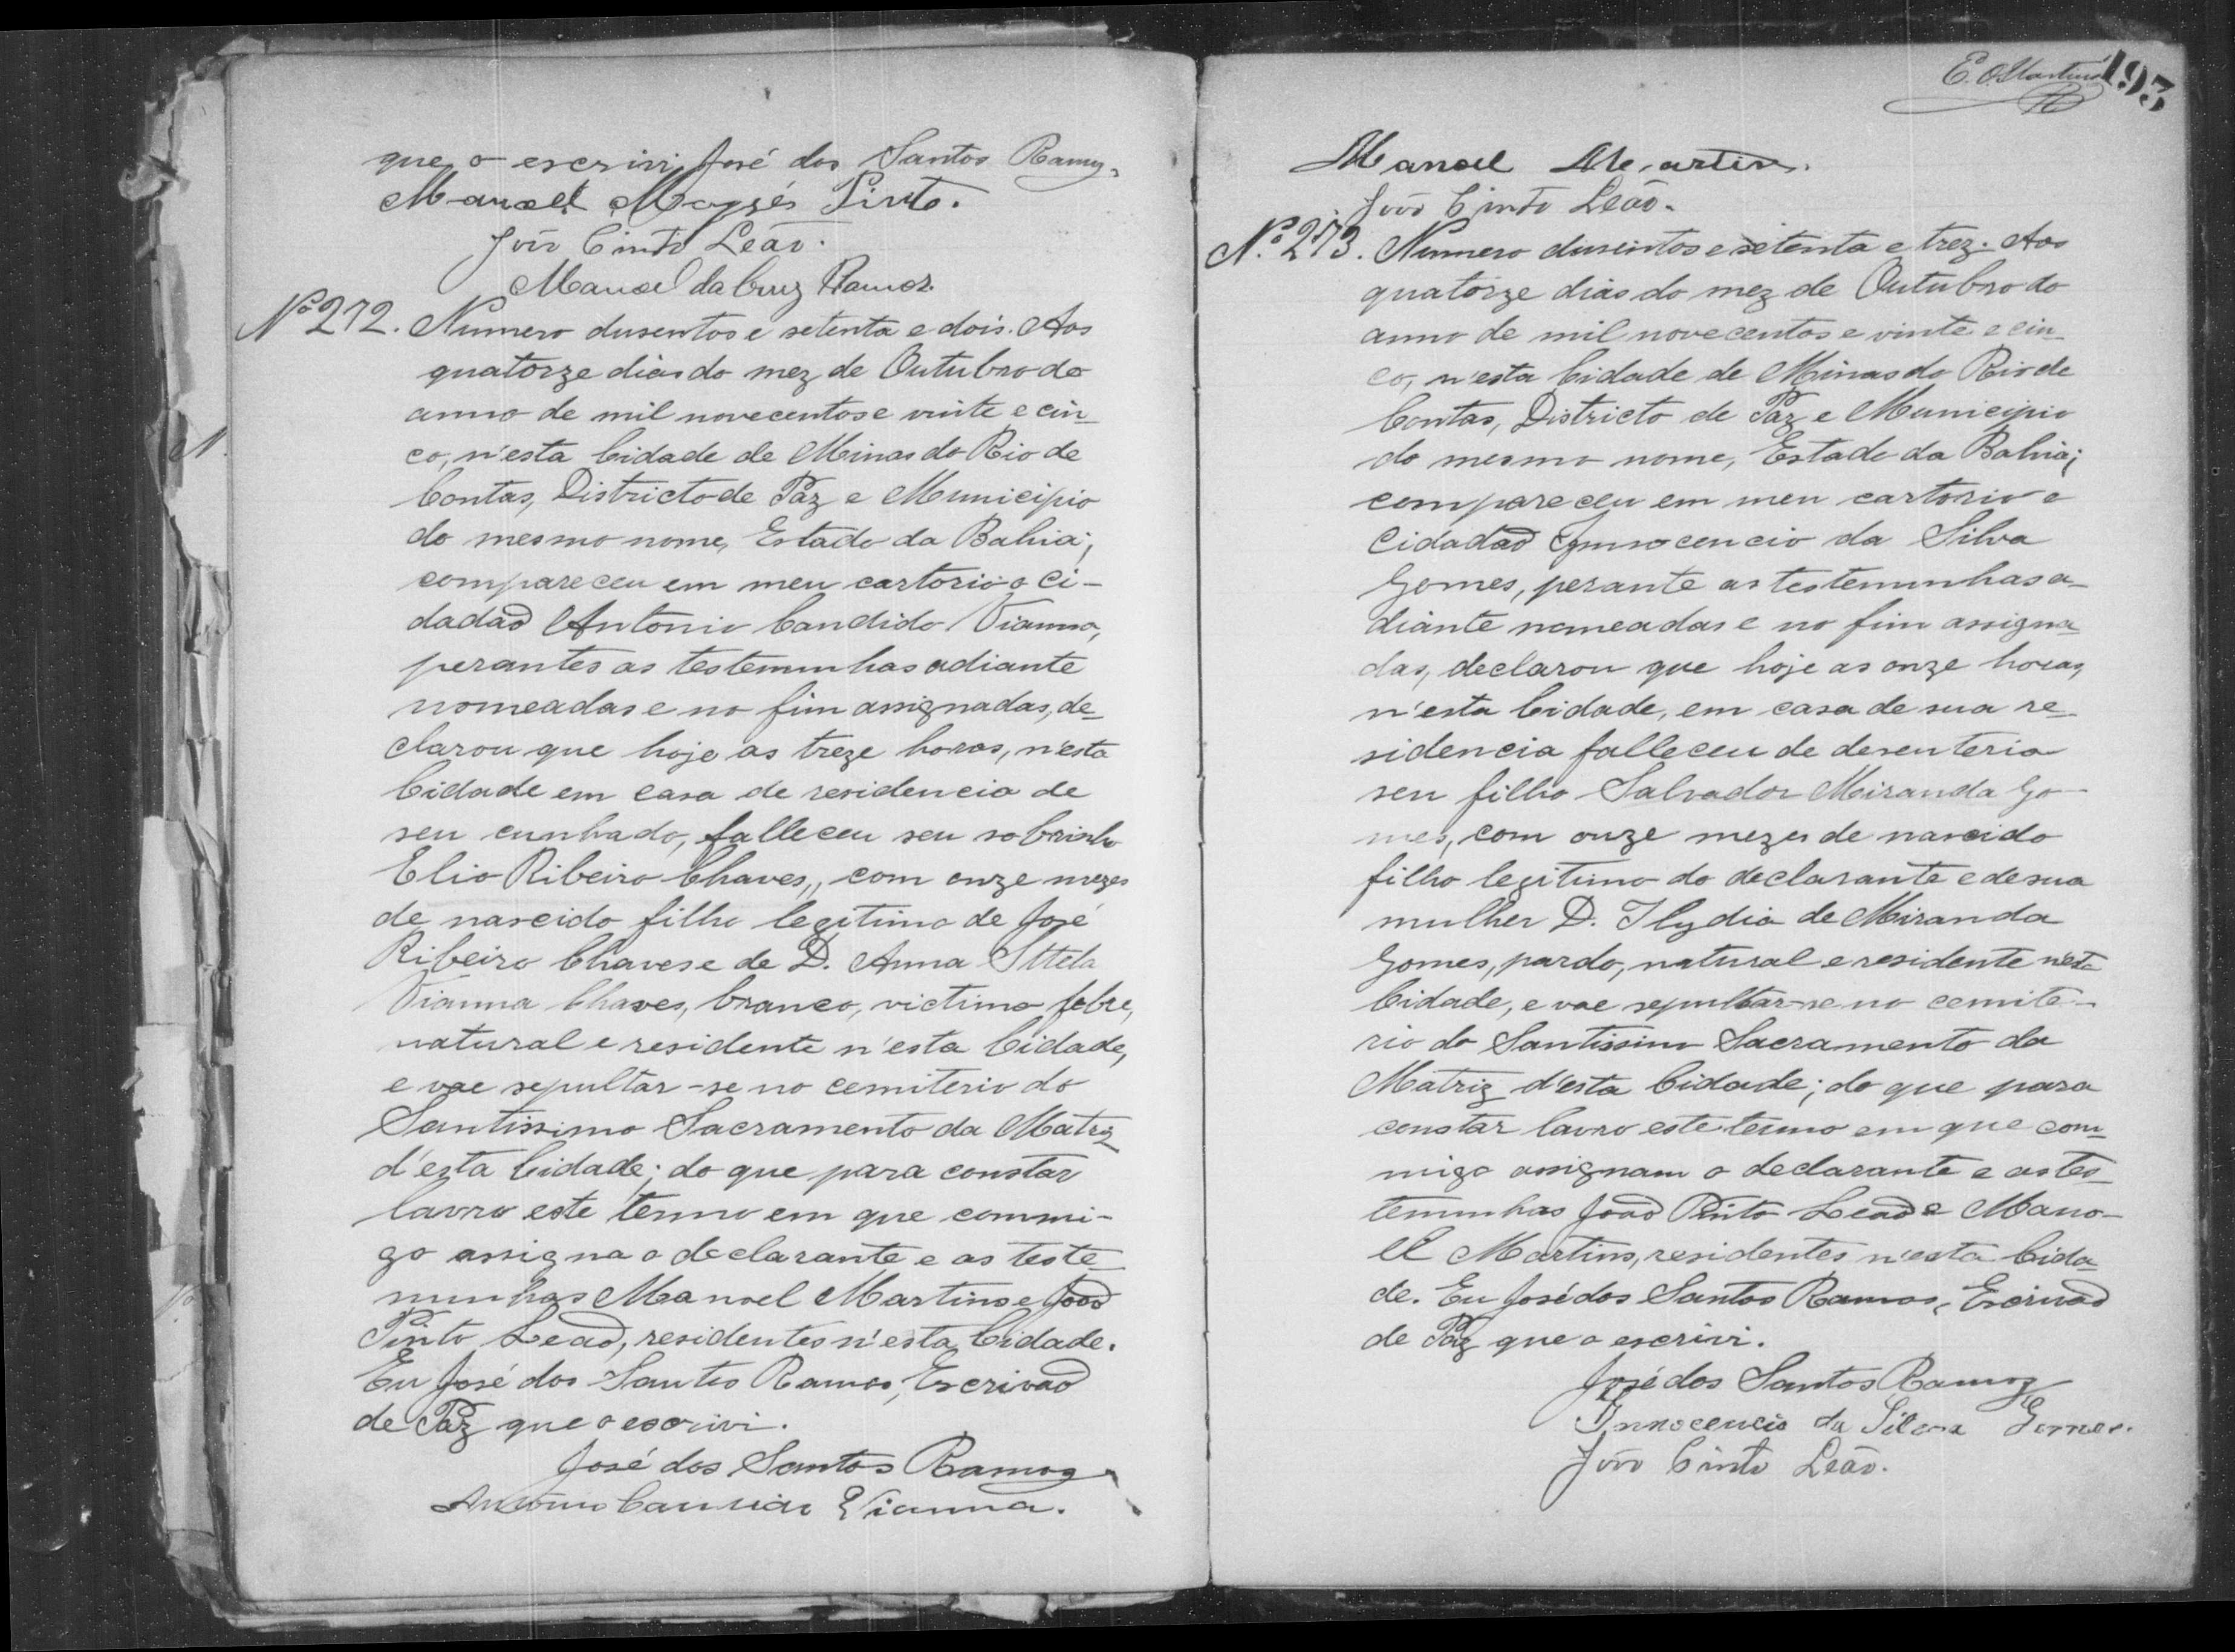 que o escrivi José dos Santos Ramos
Manoel Moysés Pinto.
João Pinto Leão.
Manoel da Cruz Ramos.
Nº 272. Numero dusentos e setenta e dois. Aos
quatorze dias do mez de Outubro do
anno de mil novecentos e vinte e cin-
co, n'esta Cidade de Minas do Rio de
Contas, Districto de Paz e Municipio
do mesmo nome, Estado da Bahia;
compareceu em meu cartorio o ci-
dadão Antonio Candido Vianna,
perantes as testemunhas adiante
nomeadas e no fim assignadas, de-
clarou que hoje as treze horas, n'esta
Cidade em casa de residencia de
seu cunhado, falleceu seu sobrinho
Elio Ribeiro Chaves,, com onze mezes
de nascido filho legitimo de José
Ribeiro Chaves e de D. Anna Sttela
Vianna Chaves, branco, victima febre,
natural e residente n'esta Cidade,
e vae sepultar-se no cemiterio do
Santissimo Sacramento da Matriz
d'esta Cidade; do que para constar
lavro este termo em que commi-
go assigna o declarante e as teste-
munhas Manoel Martins e João
Pinto Leão, residentes n'esta Cidade.
Eu José dos Santos Ramos, Escrivão
de Paz que o escrivi.
José dos Santos Ramos
Antonio Candido Vianna.
E. O. Martins
193
Manoel Martins.
João Pinto Leão.
Nº 273. Numero dusentos e setenta e trez. Aos
quatorze dias do mez de Outubro do
anno de mil novecentos e vinte e cin-
co, n'esta Cidade de Minas do Rio de
Contas, Districto de Paz e Municipio
do mesmo nome, Estado da Bahia;
compareceu em meu cartorio o
Cidadão Innocencio da Silva
Gomes, perante as testemunhas a-
diante nomeadas e no fim assigna-
das, declarou que hoje as onze horas,
n'esta Cidade, em casa de sua re-
sidencia falleceu de desenteria
seu filho Salvador Miranda Go-
mes, com onze mezes de nascido
filho legitimo do declarante e de sua
mulher D. Ilydia de Miranda
Gomes, pardo, natural e residente n'esta
Cidade, e vae sepultar-se no cemite-
rio do Santissimo Sacramento da
Matriz d'esta Cidade; do que para
constar lavro este termo em que com-
migo assignam o declarante e as tes-
temunhas João Pinto Leão e Mano-
el Martins, residentes n'esta Cida-
de. Eu José dos Santos Ramos, Escrivão
de Paz que o escrivi.
José dos Santos Ramos
Innocencio da Silva Gomes.
João Pinto Leão.